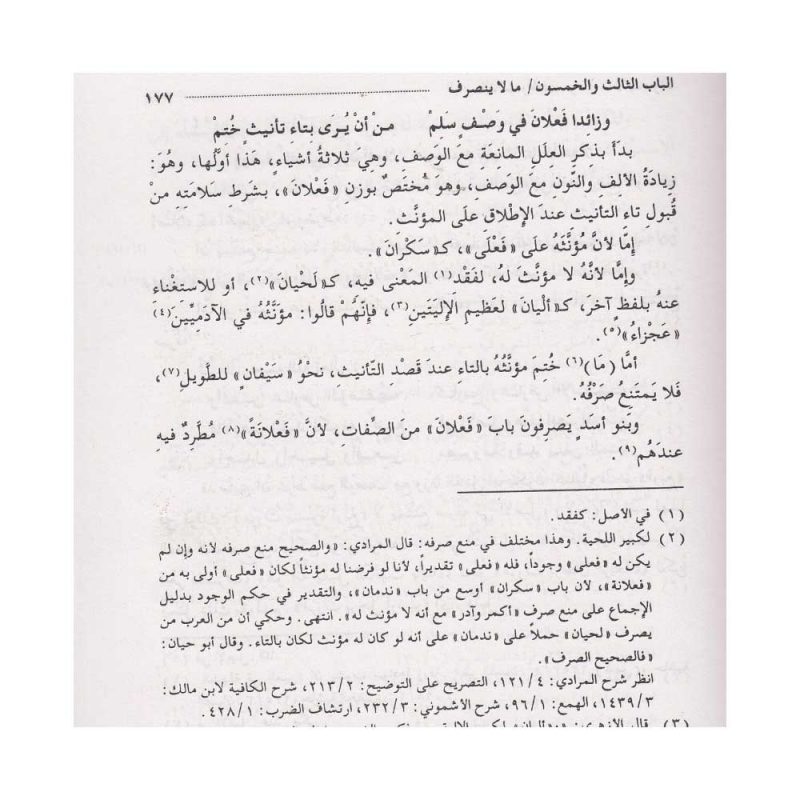 الباب الثالث والخمسون/ ما لا ينصرف ١٧٧
وزائدا فَعْلانَ في وَصْفٍ سَلِمْ مـنْ أنْ يُـرَى بـتـاءِ تأنيثٍ خُتِمْ
بدَأ بذكرِ العللِ المانعَةِ معَ الوَصفِ، وهيَ ثلاثةُ أشياءَ، هَذا أوَّلُها، وهُوَ:
زيادَةُ الألِفِ والنُّونِ معَ الوَصفِ، وهوَ مُختَصٌ بوزنِ «فَعْلانَ»، بشرطِ سَلامَتِهِ منْ
قُبولِ تاءِ التأنيثِ عندَ الإطْلاقِ علَى المؤنَّثِ.
إمَّا لأنَّ مُؤنَّثَهُ علَى «فَعْلَى»، كـ«سَكْرانَ».
وإمَّا لأنَّهُ لا مؤنَّثَ لهُ، لفَقْدِ(١) المَعْنى فيهِ، كـ«لَحْيانَ»(٢)، أو للاستغْناءِ
عنهُ بلفظٍ آخرَ، كـ«ألْيانَ» لعَظيمِ الإليَتَينِ(٣)، فإنَّهُمْ قالُوا: مؤنَّثُهُ في الآدَميِّينَ(٤)
«عَجْزاءُ»(٥).
أمَّا (مَا)(٦) خُتمَ مؤنَّثُهُ بالتاء عندَ قصْدِ التأنيثِ، نحْوُ «سَيْفان» للطَّويلِ(٧)،
فَلا يَمتَنعُ صَرْفُهُ.
وبَنو أسَدٍ يَصرِفونَ بابَ «فَعْلانَ» منَ الصِّفاتِ، لأنَّ «فَعْلانَةً»(٨) مُطَّرِدٌ فيهِ
عندَهُم(٩).
(١) في الأصل: كفقد.
(٢) لكبير اللحية. وهذا مختلف في منع صرفه: قال المرادي: «والصحيح منع صرفه لأنه وإن لم
يكن له «فعلى» وجوداً، فله «فعلى» تقديراً، لأنا لو فرضنا له مؤنثاً لكان «فعلى» أولى به من
«فعلانة»، لأن باب «سكران» أوسع من باب «ندمان»، والتقدير في حكم الوجود بدليل
الإجماع على منع صرف «أكمر وآدر» مع أنه لا مؤنث له». انتهى. وحكي أن من العرب من
يصرف «لحيان» حملاً على «ندمان» على أنه لو كان له مؤنث لكان بالتاء. وقال أبو حيان:
«فالصحيح الصرف».
انظر شرح المرادي: ١٢١/٤، التصريح على التوضيح: ٢١٣/٢، شرح الكافية لابن مالك:
١٤٣٩/٣، الهمع: ٩٦/١، شرح الأشموني: ٢٣٢/٣، ارتشاف الضرب: ٤٢٨/١.
(٣) قال الأزهري: